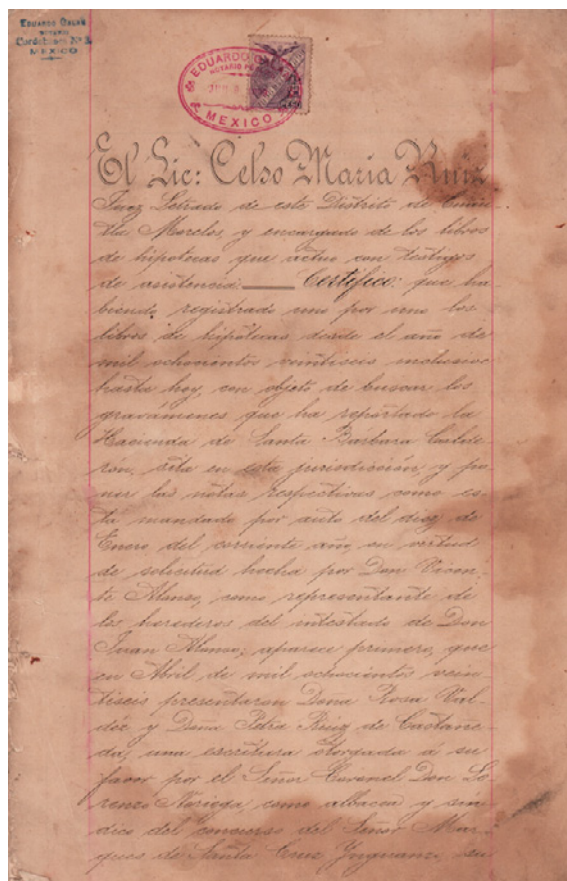 EDUARDO GALÁN
NOTARIO
Cordobanes Nº 3.
MEXICO
EDUARDO GALÁN
NOTARIO
MEXICO
El Lic: Celso María Ruiz
Juez Letrado de este Distrito de Cuau
tla Morelos, y encargado de los libros
de hipotecas que actúa con testigos
de asistencia. Certifico: que ha
biendo registrado uno por uno los
libros de hipotecas desde el año de
mil ochocientos veintiseis inclusive
hasta hoy, con objeto de buscar los
gravámenes que ha reportado la
Hacienda de Santa Bárbara Calde
ron, sita en esta jurisdicción, y po
ner las notas respectivas como es
tá mandado por auto del diez de
Enero del corriente año, en virtud
de solicitud hecha por Don Vicen
te Alonso, como representante de
los herederos del intestado de Don
Juan Alonso; aparece primero, que
en Abril de mil ochocientos vein
tiseis presentaron Doña Rosa Val
déz y Doña Petra Ruiz de Castañe
da, una escritura otorgada á su
favor por el Señor Coronel Don Lo
renzo Noriega, como albacea y sín
dico del concurso del Señor Mar
ques de Santa Cruz Ynguanzo, su